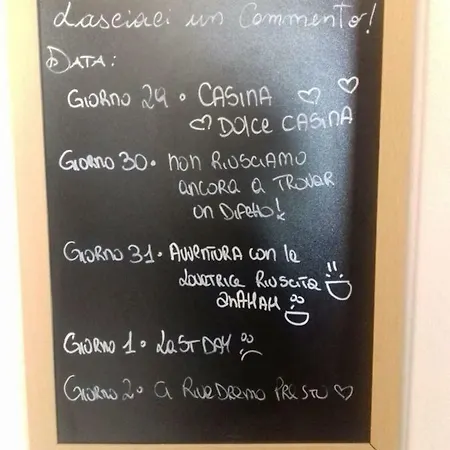 Lasciaci un Commento!
DATA:
GIORNO 29 • CASINA
DOLCE CASINA
GIORNO 30 • NON RIUSCIAMO
ANCORA A TROVAR
UN DIFETTO!
GIORNO 31 • AVVENTURA CON LA
LAVATRICE RIUSCITA
AHAHAH
GIORNO 1 • LAST DAY
GIORNO 2 • CI RIVEDREMO PRESTO